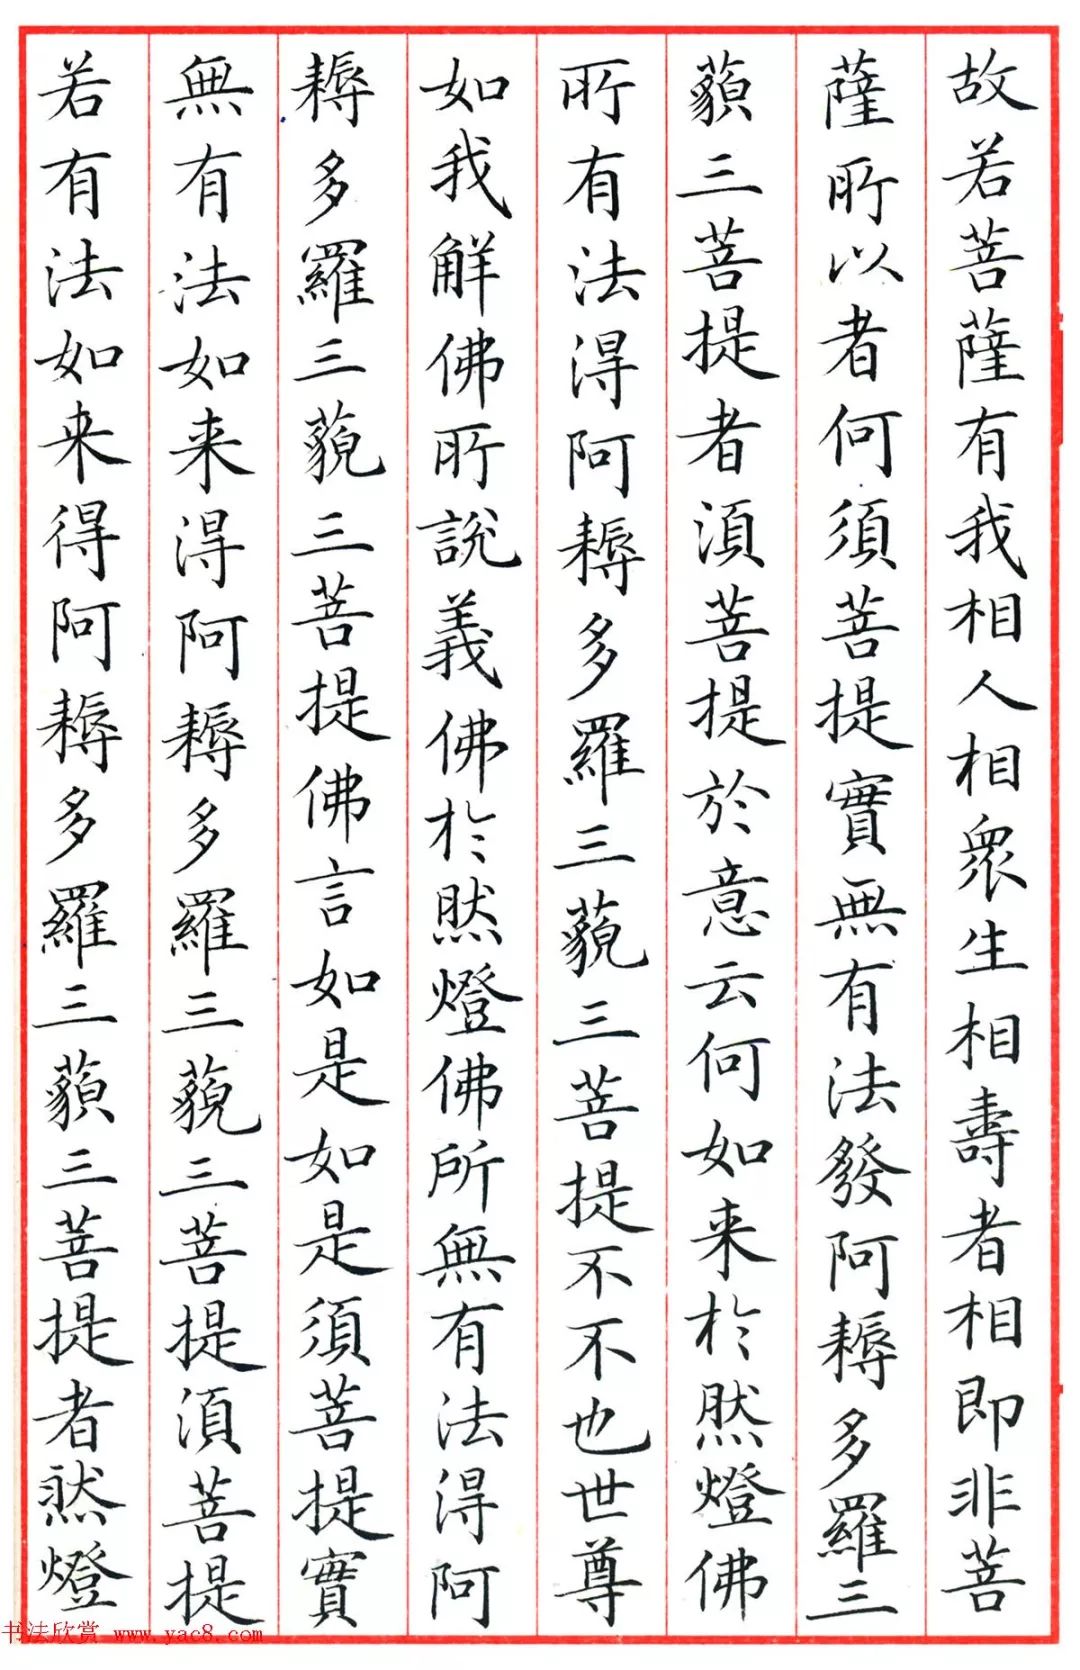 故若菩薩有我相人相衆生相壽者相即非菩
薩所以者何須菩提實無有法發阿耨多羅三
藐三菩提者須菩提於意云何如来於然燈佛
所有法得阿耨多羅三藐三菩提不不也世尊
如我解佛所說義佛於然燈佛所無有法得阿
耨多羅三藐三菩提佛言如是如是須菩提實
無有法如来得阿耨多羅三藐三菩提須菩提
若有法如来得阿耨多羅三藐三菩提者然燈
书法欣赏 www.yac8.com